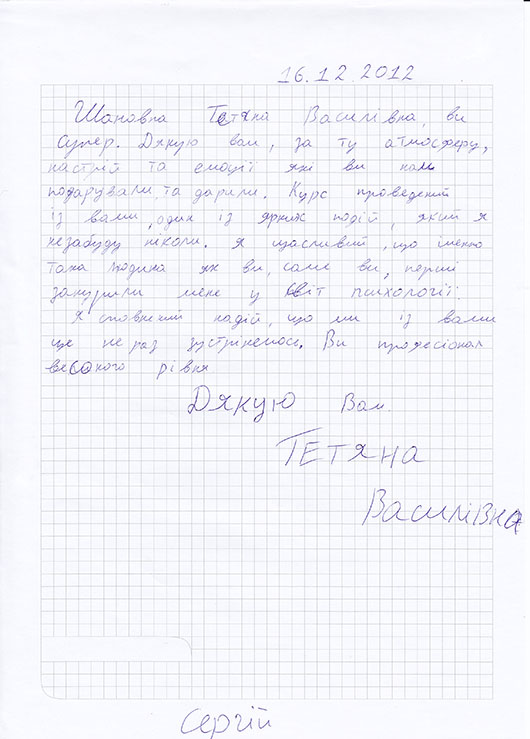 16.12.2012
Шановна Тетяна Василівна, ви
супер. Дякую вам, за ту атмосферу,
настрій та емоції які ви нам
подарували, та дарили. Курс проведений
із вами, один із ярких подій, який я
незабуду ніколи. Я щасливий, що іменно
така людина як ви, саме ви, перші
занурили мене у світ психології.
Я сповнений надій, що ми із вами
ще не раз зустрінемось. Ви професіонал
високого рівня
Дякую Вам.
Тетяна
Василівна
Сергій